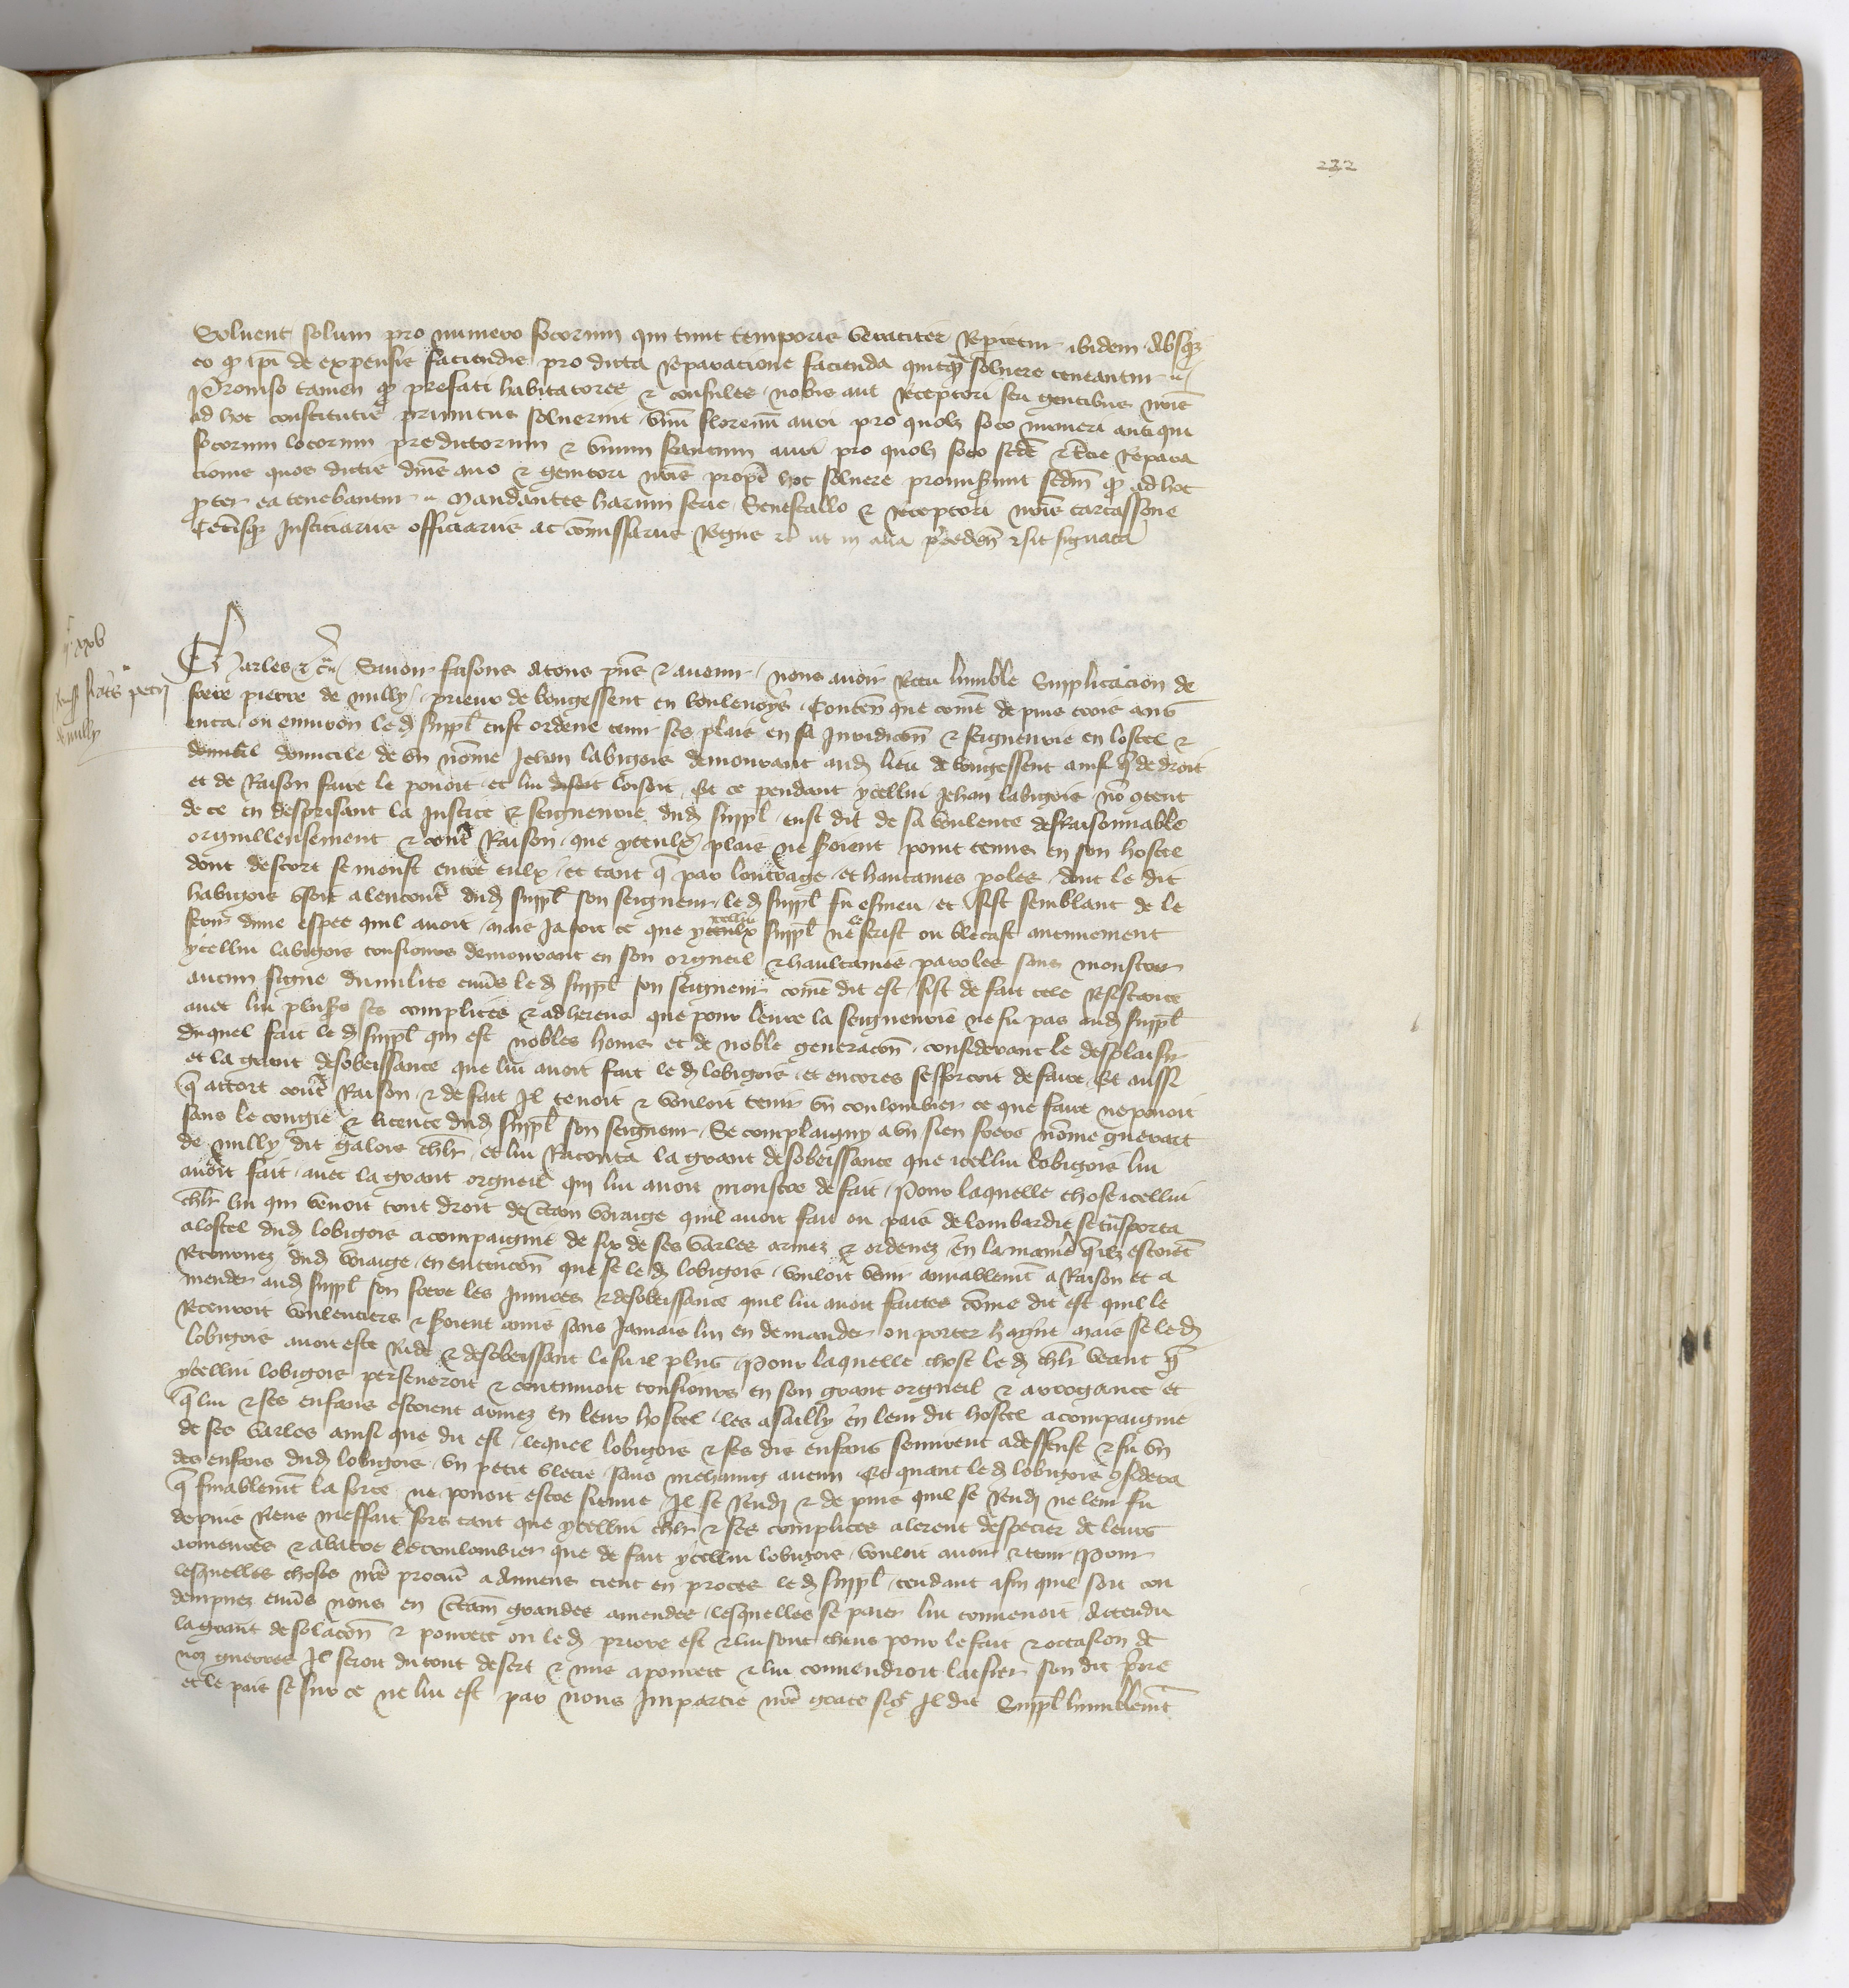 232
Solvent solum pro numero focorum qui tunc temporis veraciter reperietur ibidem absq3
eo q ipi de expensis faciendis pro dicta reparacione facienda quicq solvere teneantur
Proviso tamen q prefati habitatores & consules nobis aut receptori seu gentibus nris
ad hoc constitutis primitus solverint unu florenu auri pro quolz foco numeri antiqui
focorum locorum predictorum & unum francum auri pro quolz foco repara
cionis quos dictis dnis avo & genitori nris propt hoc solvere promiserunt q ad hoc
ea tenebantur Mandantes harum serie Senescallo & receptori nris carcassone
Justiciarus officiarus ac comissarus Regne ut in alia preceden & sic signata
Charles &c Savoir faisons atous pns & avenir nous avoir Receu lumble Suplicacion de
frere pierre de milly prieur de bougessent en boulenoys Conten que come depuis trois ans
enca ou environ le d suppl eust ordene tenir ses plais en sa Juridicon & seigneurie en lostel &
domicile de un nome Jehan labigois demourant aud lieu de bougessent ainsi q de droit
et de Raison faire le povoit et lui loisoit Et ce pendant ycellui Jehan labigois no content
de ce en desprisant la Justice & seigneurie dud suppl eust dit de sa voulente desRaisonnable
orguilleusement & contre Raison que yceulx plais ne seroient point tenus en son hostel
dont descort se meust entre eulx et tant q par loutrage et hautaines poles dont le dit
habigois usoit alencontre dud suppl son seigneur le d suppl fu esmeu et fist semblant de le
ferir dune espee quil avoit mais Ja soit ce que ycellui suppl ne le ferist ou blecast aucunement
ycellui labigois tousiours demourant en son orgueil & haultaines paroles sans monstrer
aucun signe dumilite envers le d suppl son seigneur come dit est fist de fait tele Resistance
avec lui plusrs ses complices & adherens que pour leure la seigneurie ne fu pas aud suppl
Duquel fait le d suppl qui est nobles homs et de noble generacon considerant le desplaisir
et la grant desobeissance que lui avoit fait le d lobigois et encores sefforcoit de faire Et aussi
q attort contre Raison & de fait Il tenoit & vouloit tenir un coulombier ce que faire ne povoit
sans le congie & licence dud suppl son seigneur Se complaigny a un sien frere nome guerart
de milly dit galois chlr et lui Raconta la grant desobeissance que icellui lobigois lui
avoit fait avec la grant orgueil qui lui avoit monstre de fait Pour laquelle chose icellui
chlr lui qui venoit tout droit de certain voiaige quil avoit fait ou pais de lombardie se transporta
alostel dud lobigois acompaignie de six de ses varles armez & ordenez en la maniere quilz estoient
Retournez dud voiaige en entencon que se le d lobigois vouloit venir amiablement a Raison et a
mender aud suppl son frere les Jniures & desobeissance quil lui avoit faittes come dit est quil le
Recevroit voulentiers & seroient amis sans Jamais lui en demander ou porter hayne mais se le d
lobigois avoit este Rude & desobeissant le fu il plus Pour laquelle chose le d chlr veant q
ycellui lobigois perseveroit & continuoit tousiours en son grant orgueil & arrogance et
q lui & ses enfans estoient armez en leur hostel les assailly en leur dit hostel acompaignie
de ses varles ainsi que dit est lequel lobigois & ses dis enfans se mirent adeffense & fu un
des enfans dud lobigois un petit blecie sans mehaing aucun Et quant le d lobigois considera
q finablement la force ne povoit estre sienne Il se Rendi & depuis quil se Rendi ne leur fu
depuis Riens meffait fors tant que ycellui chlr & ses complices alerent despecier de leurs
armeures & abatre le coulombier que de fait ycellui lobigois vouloit avoir & tenir Pour
lesquelles choses nre procureur a Amiens tient en proces le d suppl tendant afin quil soit con
dempnez envers nous en certaines grandes amendes lesquelles se paier lui convenoit Attendu
la grant desolacon & povrete ou le d priore est & lui sont cheus pour le fait & occasion de
noz guerres Il seroit du tout desert & mis a povrete & lui convendroit laissier son dit priore
et le pais se sur ce ne lui est par nous Impartie nre grace sicome Il dit Suppl humblement